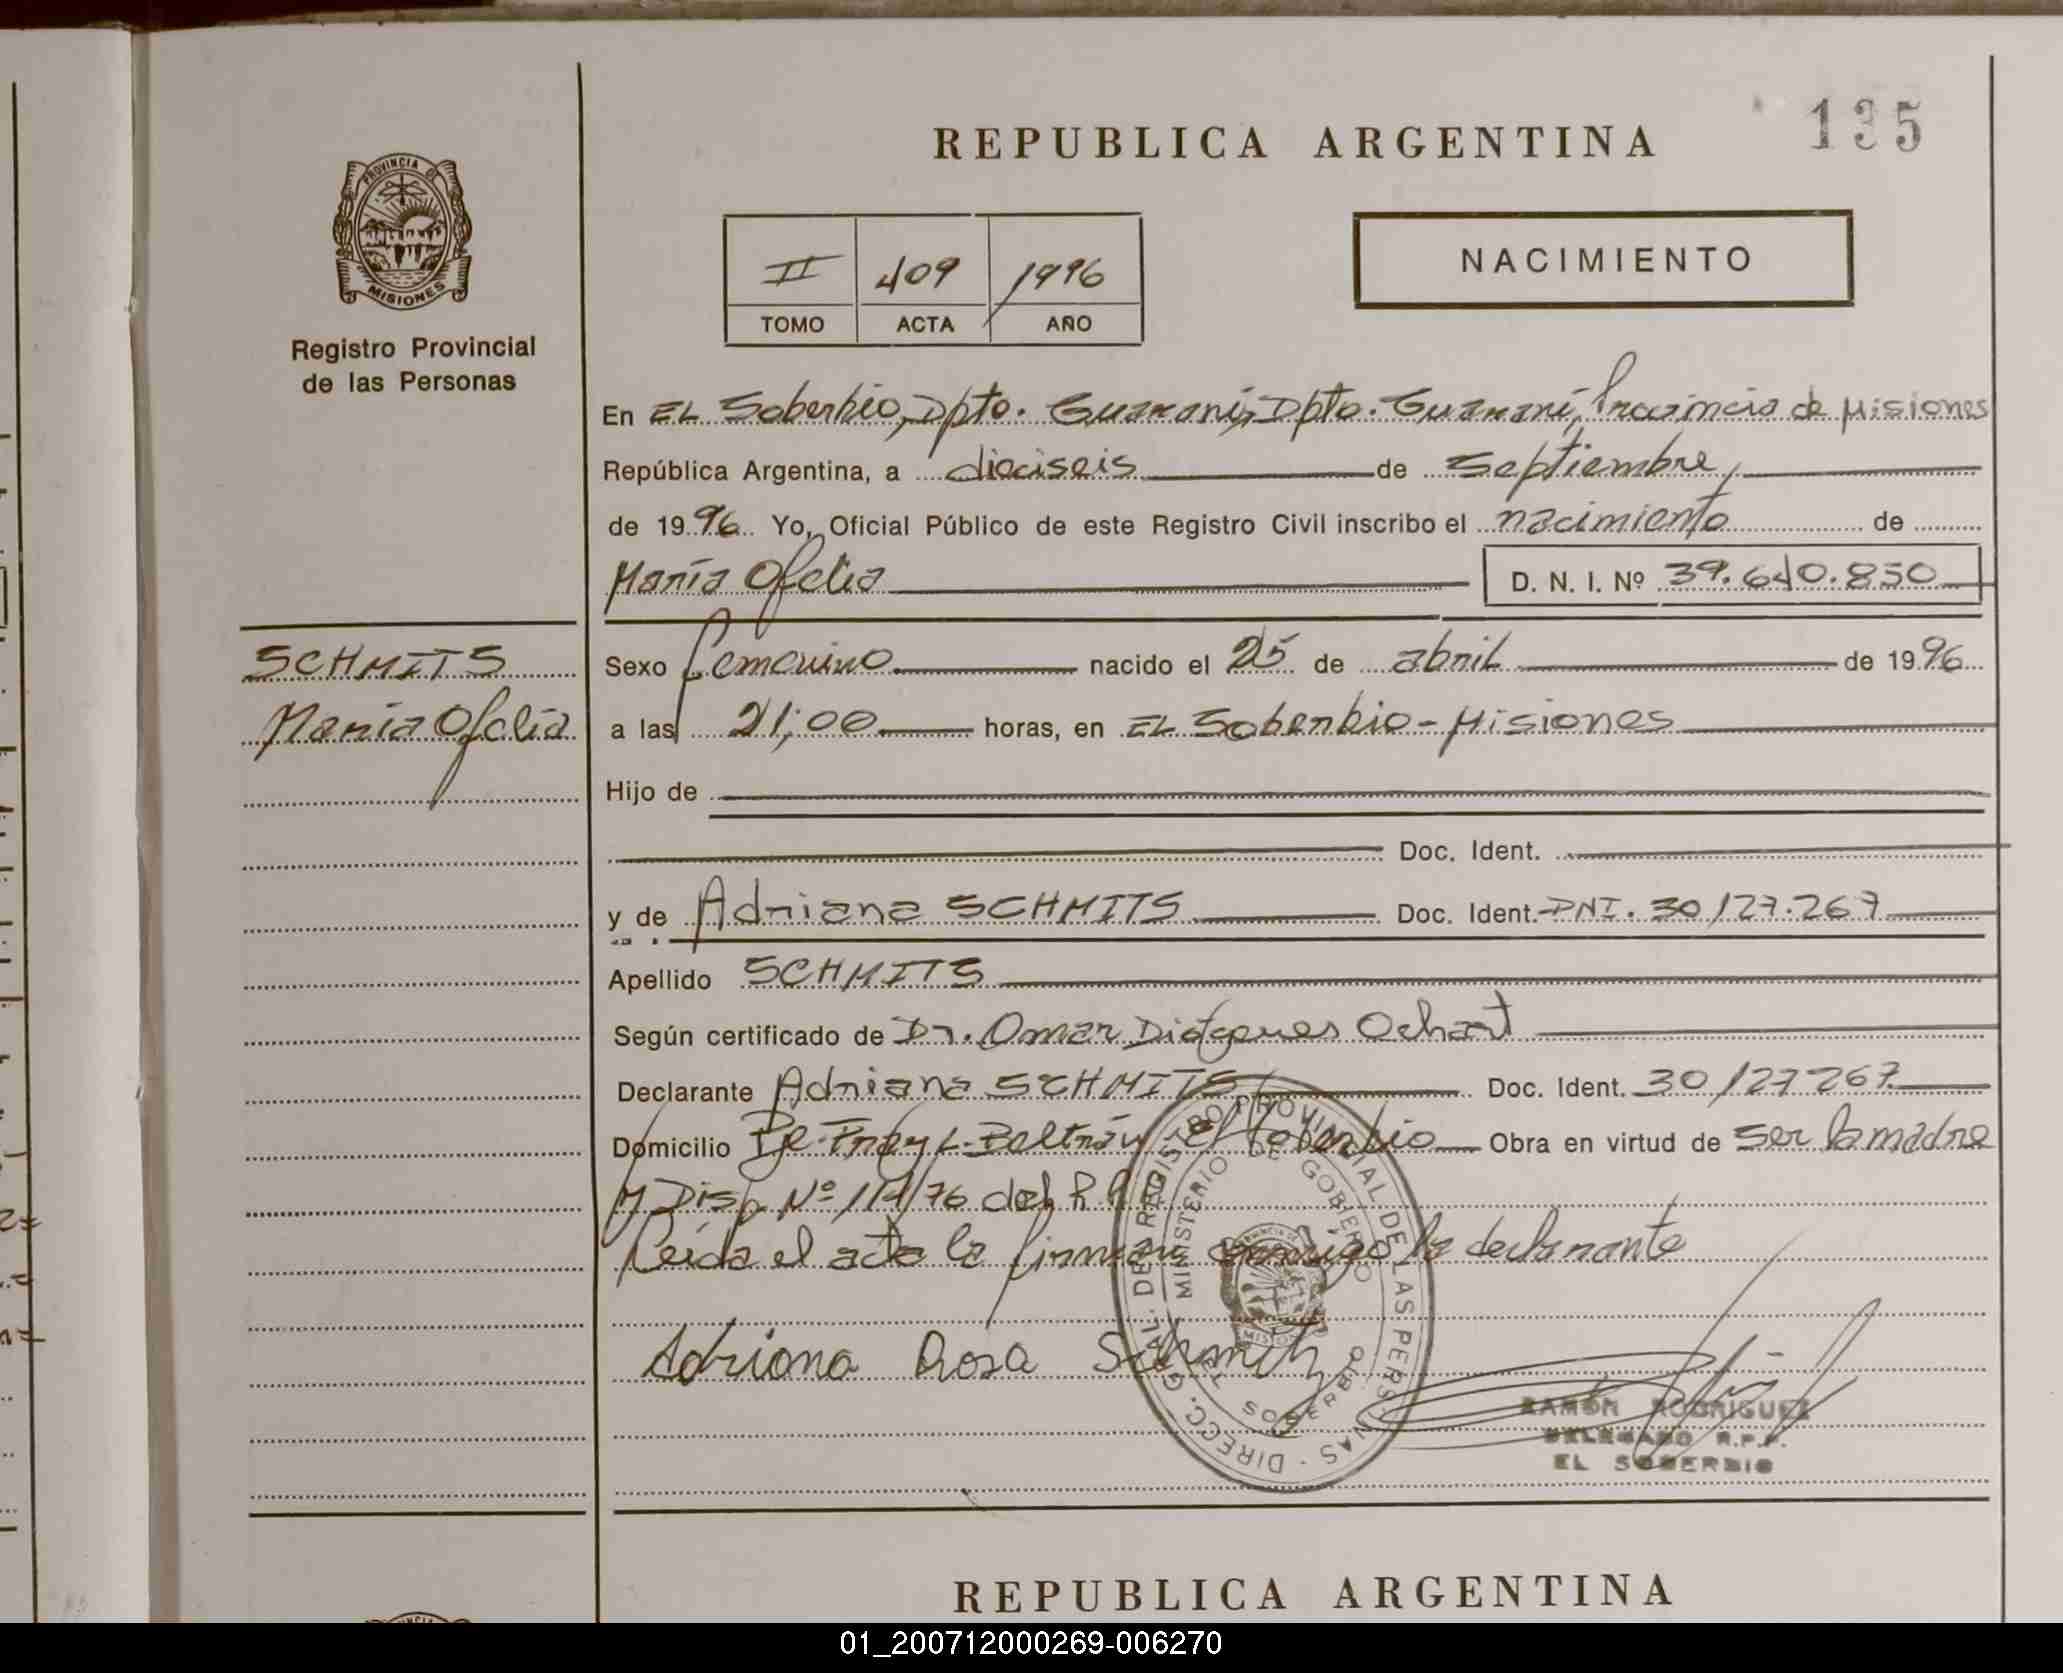 135
REPUBLICA ARGENTINA
PROVINCIA DE
MISIONES
Registro Provincial
de las Personas
II 409 1996
TOMO ACTA AÑO
NACIMIENTO
En EL Soberbio, Dpto. Guaraní, Dpto. Guaraní, Provincia de Misiones
República Argentina, a dieciseis de Septiembre,
de 1996 Yo, Oficial Público de este Registro Civil inscribo el nacimiento de
María Ofelia D. N. I. Nº 39.640.850
SCHMITS
María Ofelia
Sexo femenino nacido el 25 de abril de 1996
a las 21;00 horas, en EL Soberbio - Misiones
Hijo de
Doc. Ident.
y de Adriana SCHMITS Doc. Ident. DNI. 30/127.267
Apellido SCHMITS
Según certificado de Dr. Omar Diógenes Ochart
Declarante Adriana SCHMITS Doc. Ident. 30/127267
Domicilio Pje. Fray L. Beltrán El Soberbio Obra en virtud de ser la madre
y Disp. Nº 114/76 del R.P.
Leída el acta la firman conmigo la declarante
Adriana Rosa Schmits
DIRECC. GRAL. DE REGISTRO PROVINCIAL DE LAS PERSONAS
MINISTERIO DE GOBIERNO
MISIONES
EL SOBERBIO
RAMÓN RODRIGUEZ
DELEGADO R.P.P.
EL SOBERBIO
REPUBLICA ARGENTINA
01_200712000269-006270